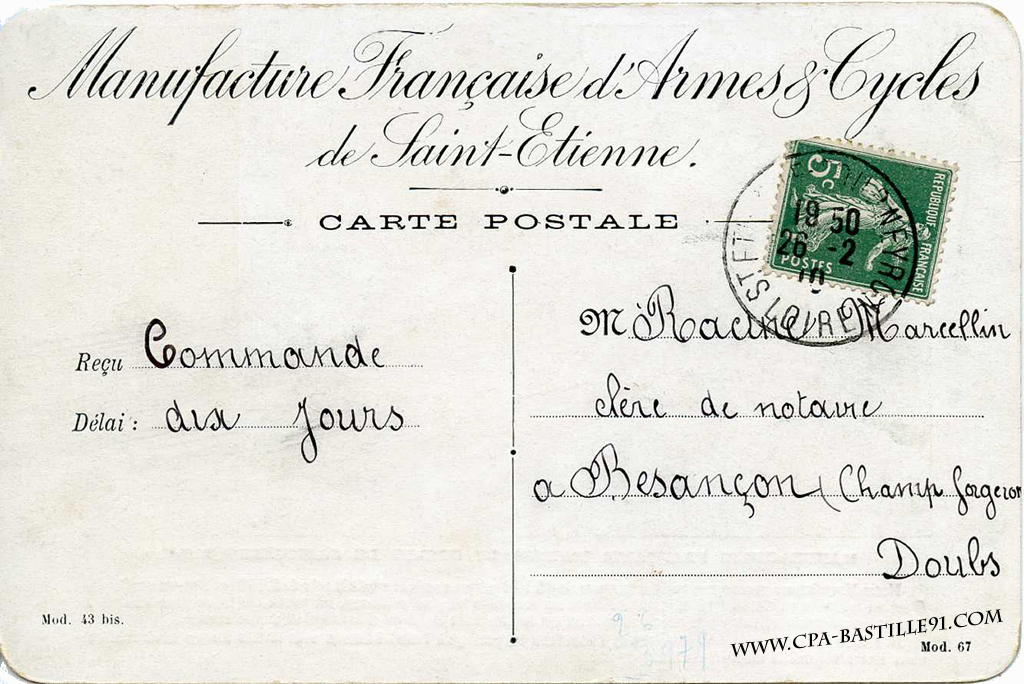 Manufacture Française d'Armes & Cycles
de Saint-Etienne.
CARTE POSTALE
5c
REPUBLIQUE FRANÇAISE
POSTES
19 50
26 -2
10
LOIRE
Reçu Commande
Délai : dix Jours
Mr Racine Marcellin
clère de notaire
a Besançon (Champ forgeron
Doubs
Mod. 43 bis.
WWW.CPA-BASTILLE91.COM
Mod. 67